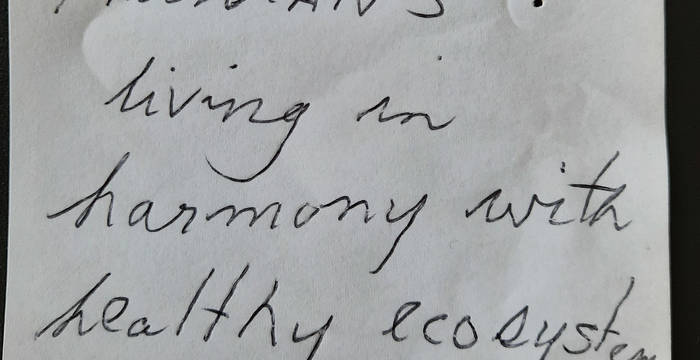 living in
harmony with
healthy ecosystem